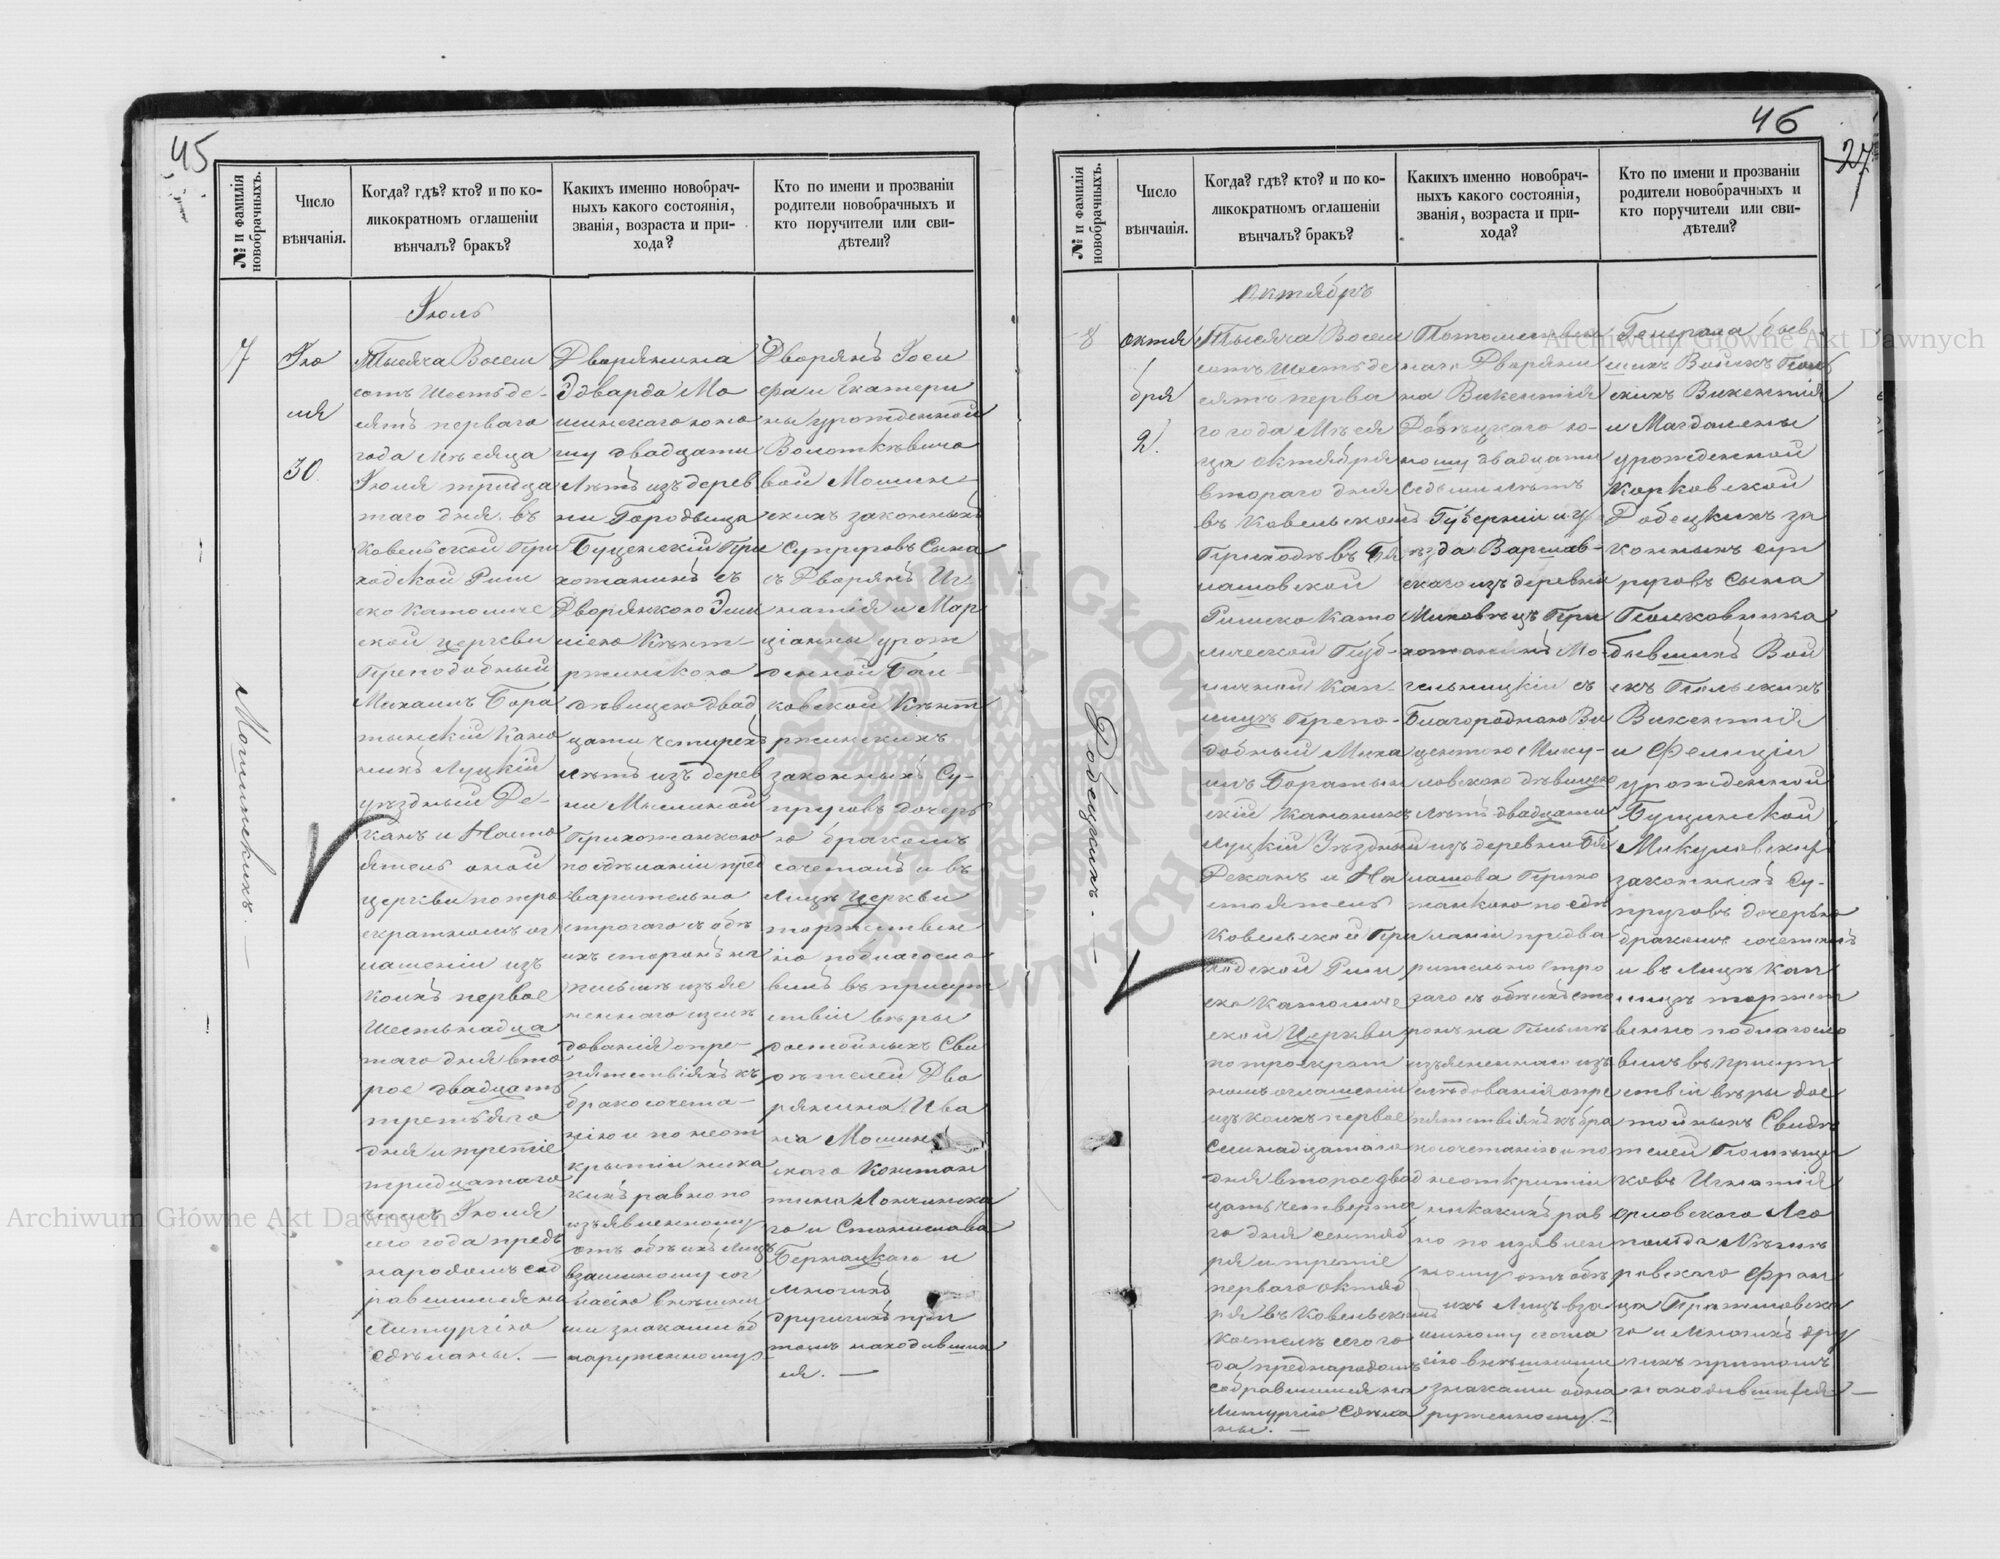 45
№ и фамилія новобрачныхъ.
Число
вѣнчанія.
Когда? гдѣ? кто? и по ко-
ликократномъ оглашеніи
вѣнчалъ? бракъ?
Какихъ именно новобрач-
ныхъ какого состоянія,
званія, возраста и при-
хода?
Кто по имени и прозванію
родители новобрачныхъ и
кто поручители или сви-
дѣтели?
7
Мошинскихъ. —
Ию
ля
30
Іюль
Тысяча Восем
сотъ Шестьде-
сятъ перваго
года Мѣсяца
Іюля тридца
таго дня въ
Ковельской При
ходской Рим
ско Католиче
ской церкви
Преподобный
Михаилъ Бора
тынскій Кано
никъ Луцкій
уѣздный Де-
канъ и Насто
ятель оной
церкви по тро
екратномъ ог
лашеніи изъ
коихъ первое
Шестьнадца
таго дня вто
рое двадцать
третьяго
дня и третіе
тридцатаго
числ Іюля
сего года предъ
народомъ соб
равшимся на
Литургію
сдѣланы. —
Дворянина
Эдварда Мо
шинскаго юно
шу двадцати
лѣтъ изъ дерев
ни Городища
Буценскій При
хожанинъ съ
Дворянкою Эми
ліею Кѣнт-
ржинскою
дѣвицею двад
цати четырехъ
лѣтъ изъ дерев
ни Мылиной
Прихожанкою
по сдѣланіи пред
варительно
строгаго съ обѣ
ихъ сторонъ на
письмѣ изъяс
неннаго изслѣ
дованія о пре-
пятствіяхъ къ
бракосочета-
нію и по неот
крытіи ника
кихъ равно по
изъявленному
отъ обѣихъ лицъ
взаимному сог
ласію внѣшни
ми знаками об
наруженному
Дворянъ Іоси
фа и Екатери
ны урожденной
Волоткѣвичо
вой Мошин-
скихъ законныхъ
Супруговъ Сына
съ Дворянъ Иг
натія и Мар
ціанны урож
денной Бай-
ковской Кѣнт
ржинскихъ
законныхъ Су-
пруговъ дочерь
ю бракомъ
сочеталъ и въ
Лицѣ Церкви
торжествен
но поблагосло
вилъ въ присут
ствіи вѣры
достойныхъ Сви
дѣтелей Дво
рянина Ива
на Мошин
скаго Констан
тина Лончинска
го и Станислава
Бернацкаго и
многихъ
другихъ при
томъ находивших
ся. —
46
27
№ и фамилія новобрачныхъ.
Число
вѣнчанія.
Когда? гдѣ? кто? и по ко-
ликократномъ оглашеніи
вѣнчалъ? бракъ?
Какихъ именно новобрач-
ныхъ какого состоянія,
званія, возраста и при-
хода?
Кто по имени и прозванію
родители новобрачныхъ и
кто поручители или сви-
дѣтели?
8
Робецкихъ. —
октя
бря
2.
Октябрь
Тысяча Восем
сотъ Шестьде
сятъ перва
го года Мѣся
ца Октября
втораго дня
въ Ковельскомъ
Приходѣ въ Бѣ
лашовской
Римско Като
лической Пуб-
личной Кап-
лицѣ Препо-
добный Миха
илъ Боратын
скій Каноникъ
Луцкій Уѣздный
Деканъ и На
стоятель
Ковельской При
ходской Рим
ско Католиче
ской Церкви
по троекрат
номъ оглашеніи
изъ коихъ первое
Семнадцатаго
дня второе двад
цать четверта
го дня сентяб
ря и третіе
перваго октяб
ря въ Ковельскомъ
костелѣ сего го
да предъ народомъ
собравшимся на
Литургію сдѣла
ны. —
Потомствен
наго Дворяни
на Викентія
Робѣцкаго ю-
ношу двадцати
Седьми лѣтъ
Губерніи и У
ѣзда Варшав-
скаго изъ деревни
Миховѣцъ При
хожанинъ Мо-
гельницкій съ
Благородною Ви
центою Мику-
ловскою дѣвицею
лѣтъ двадцати
изъ деревни Бѣ
лашова Прихо
жанкою по сдѣ
ланіи предва
рительно стро
гаго съ обѣихъ сто
ронъ на Письмѣ
изъясненнаго изъ
слѣдованія о пре
пятствіяхъ къ бра
косочетанію и по
неоткрытіи
никакихъ рав
но по изявлен
ному отъ обѣ
ихъ Лицъ вза
имному согла
сію внѣшними
знаками обна
руженному. —
Генерала быв
шихъ Войскъ Поль
скихъ Викентія
и Магдалены
урожденной
Корковской
Робецкихъ за
конныхъ суп
руговъ Сына
Полковника
бывшихъ Вой
скъ Польскихъ
Викентія
и Фелиціи
урожденной
Бущинской
Микуловскихъ
законныхъ Су-
пруговъ дочерью
бракомъ сочеталъ
и въ Лицѣ Кап
лицѣ торжест
венно поблагосло
вилъ въ присут
ствіи вѣры дос
тойныхъ Свидѣ
телей Помѣщи
ковъ Игнатія
Орловскаго Лео
польда Кѣшк
ровскаго Фран
ца Пражмовска
го и Многихъ дру
гихъ притомъ
находившихся —
Archiwum Główne Akt Dawnych
Archiwum Główne Akt Dawnych
ARCHIWUM GŁÓWNE AKT DAWNYCH